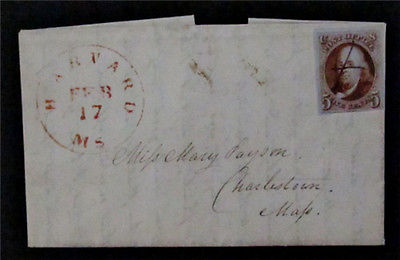 HARVARD
FEB
17
MS
POST OFFICE
5 FIVE CENTS 5
Miss Mary Payson.
Charlestown.
Mass.